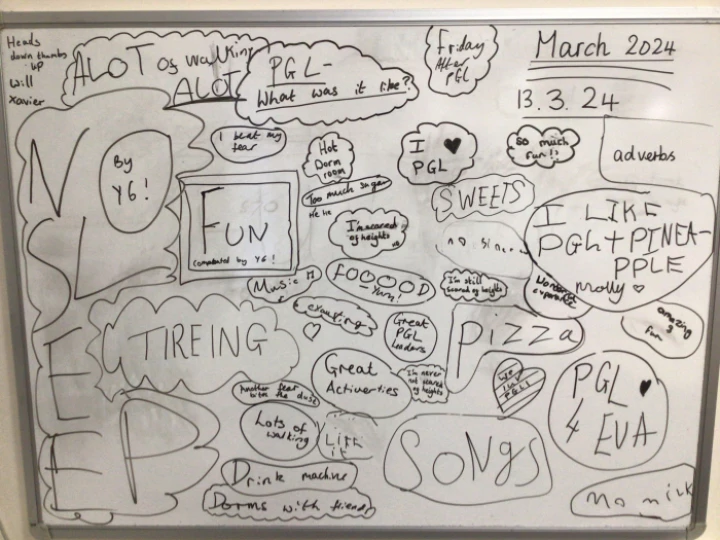 Heads
down thumbs
up
Will
Xavier
ALOT of walking
ALOT
PGL-
What was it like?
Friday
After
PGL
March 2024
13.3.24
NO
SLEEP
By
Y6!
I beat my
fear
Hot
Dorm
room
I ♥
PGL
So much
fun!!
adverbs
FUN
Completed by Y6!
Too much sugar
He He
I'm scared
of heights
SWEETS
I LIKE
PGL + PINEA-
PPLE
Molly ♡
Music
FOOOOD
Yum!
I'm still
scared of heights
exausting
♡
Great
PGL
leaders
Pizza
amazing
fun
TIREING
Great
Activerties
I'm never
not scared
of heights
PGL ♥
4 EVA
Another fear
bites the dust
Lots of
walking
LIFF
it
SONGS
Drink machine
Dorms with friends
No milk